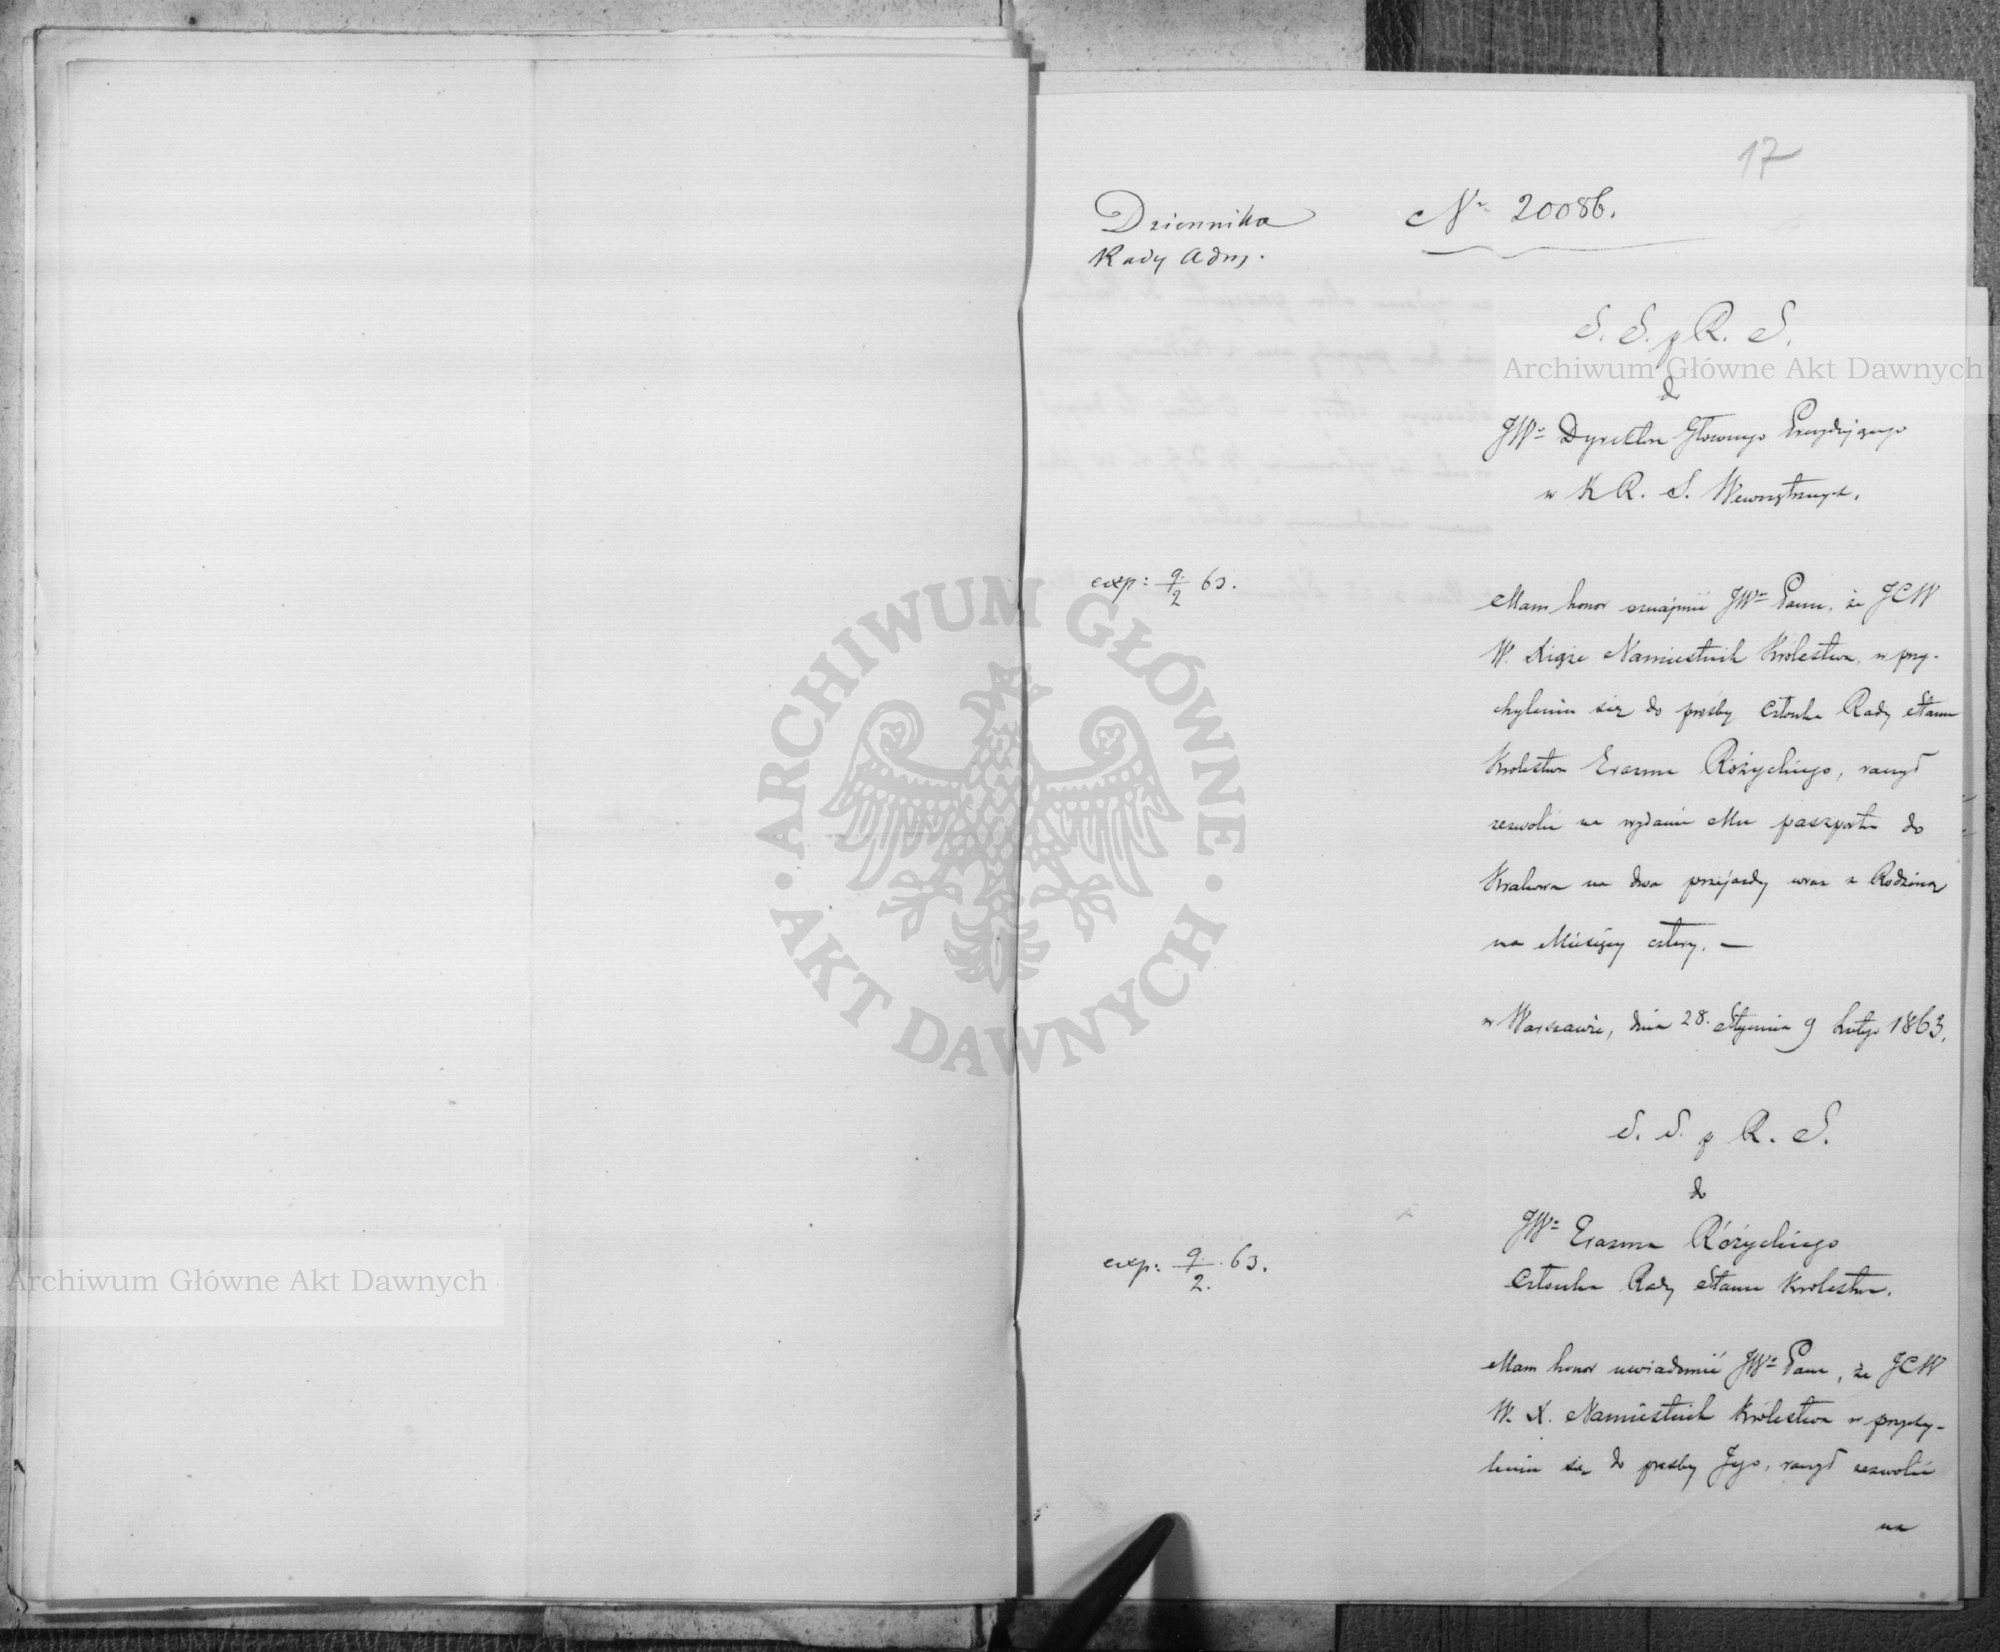 17
Dziennika
Rady Adm.
No 20086.
S. S. p R. S.
do
JWo Dyrektora Głównego Prezydującego
w K R. S. Wewnętrznych.
exp: 9/2 63.
Mam honor oznajmić JWmu Panu, że JCW
W. Xiąże Namiestnik Królestwa, w przy-
chyleniu się do prośby Członka Rady Stanu
Królestwa Erazma Różyckiego, raczył
zezwolić na wydanie Mu paszportu do
Krakowa na dwa przejazdy wraz z Rodziną
na Miesięcy cztery. —
w Warszawie, dnia 28. Stycznia 9 Lutego 1863.
S. S. p R. S.
do
JWo Erazma Różyckiego
Członka Rady Stanu Królestwa.
exp: 9/2. 63.
Mam honor uwiadomić JWo Pana, że JCW
W. X. Namiestnik Królestwa w przychy-
leniu się do prośby Jego, raczył zezwolić
na
Archiwum Główne Akt Dawnych
Archiwum Główne Akt Dawnych
ARCHIWUM GŁÓWNE AKT DAWNYCH